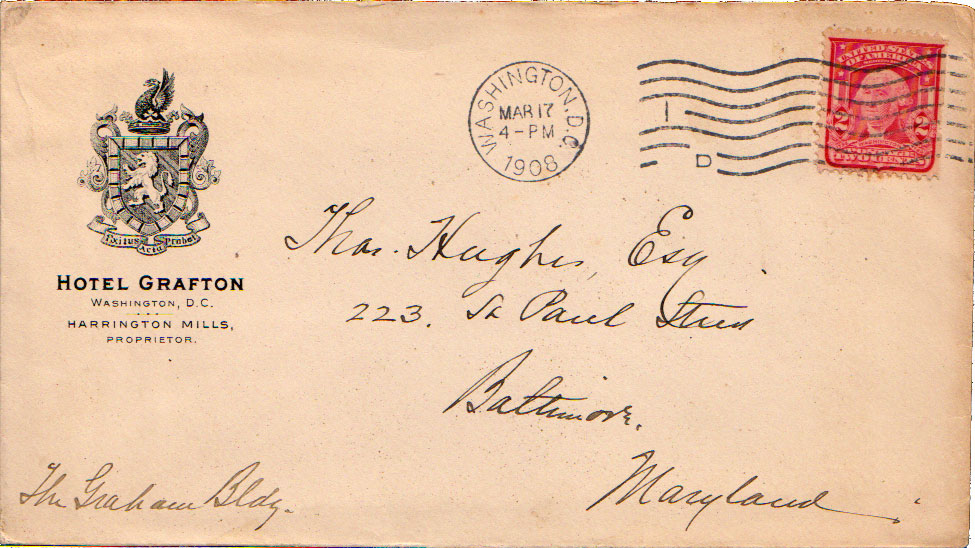 Exitus Acta Probat
HOTEL GRAFTON
WASHINGTON, D.C.
HARRINGTON MILLS,
PROPRIETOR.
WASHINGTON, D.C.
MAR 17
4-PM
1908
1
D
UNITED STATES
OF AMERICA
2 2
TWO CENTS
Thos. Hughes, Esq
223. St Paul Street
Baltimore.
Maryland
The Graham Bldg.